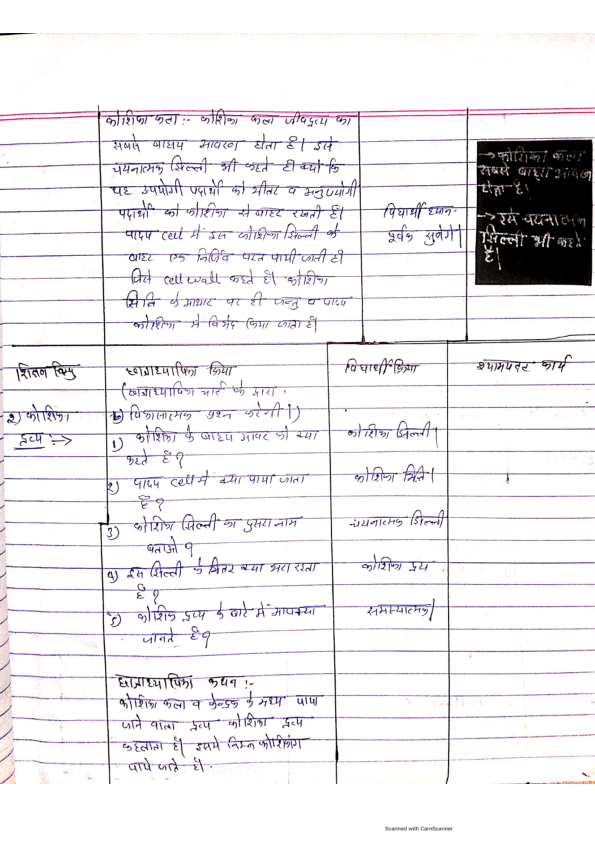 कोशिका कला :- कोशिका कला जीवद्रव्य का
सबसे बाह्य आवरण होता है। इसे
चयनात्मक झिल्ली भी कहते है क्यो कि
यह उपयोगी पदार्थो को भीतर व अनुपयोगी
पदार्थो को कोशिका से बाहर रखती है।
पादप cell में इस कोशिका झिल्ली के
बाहर एक निर्जिव परत पायी जाती है
जिसे cell wall कहते है। कोशिका
भित्ति के आधार पर ही जन्तु व पादप
कोशिका मे विभेद किया जाता है।
विद्यार्थी ध्यान-
पूर्वक सुनेगे।
→ कोशिका कला
सबसे बाह्य आवरण
होता है।
→ इसे चयनात्मक
झिल्ली भी कहते
है।
शिक्षण बिन्दु
छात्राध्यापिका क्रिया
विद्यार्थी क्रिया
श्यामपट्ट कार्य
(छात्राध्यापिका चार्ट के द्वारा
विकासात्मक प्रश्न करेगी।)
2) कोशिका
द्रव्य :->
1) कोशिका के बाहय आवर को क्या
कहते है?
कोशिका झिल्ली।
2) पादप cell में क्या पाया जाता
है?
कोशिका भित्ति।
3) कोशिका झिल्ली का दुसरा नाम
बताओ ?
चयनात्मक झिल्ली
4) इस झिल्ली के भितर क्या भरा रहता
है?
कोशिका द्रव्य
5) कोशिका द्रव्य के बारे में आप क्या
जानते है?
समस्यात्मक।
छात्राध्यापिका कथन :-
कोशिका कला व केन्द्रक के मध्य पाया
जाने वाला द्रव्य कोशिका द्रव्य
कहलाता है। इसमे निम्न कोशिकांग
पाये जाते है।
Scanned with CamScanner